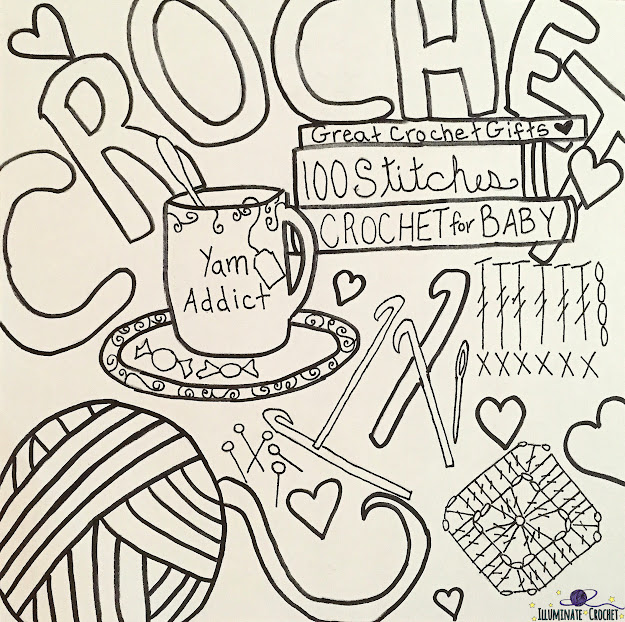 CROCHET
Great Crochet Gifts
100 Stitches
CROCHET for BABY
Yarn
Addict
XXXXXX
ILLUMINATE CROCHET